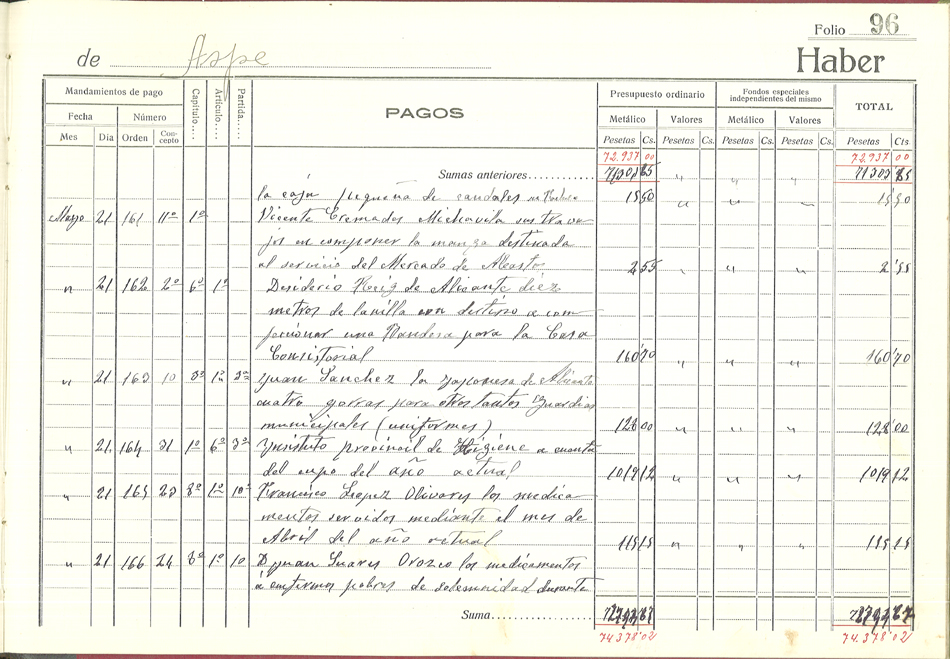 Folio 96
de Aspe
Haber
Mandamientos de pago
Fecha Número
Mes Día Orden Concepto
Capítulo.... Artículo.... Partida....
PAGOS
Presupuesto ordinario
Metálico Valores
Pesetas Cs. Pesetas Cs.
Fondos especiales independientes del mismo
Metálico Valores
Pesetas Cs. Pesetas Cs.
TOTAL
Pesetas Cts
72.937 00 72.937 00
Sumas anteriores
la caja pequeña de caudales 15 50 " " " 15 50
Mayo 21 161 11º 1º Vicente Cremades Michavila sus trava
jos en componer la manga destinada
al servicio del Mercado de Abastos 2 55 " " " 2'55
" 21 162 2º 6º 1º Desiderio Reig de Alicante diez
metros de lanilla con destino a com
feccionar una Bandera para la Casa
Consistorial 160'70 " " " 160'70
" 21 163 10 3º 1º 3ª Juan Sanchez la Japonesa de Alicante
cuatro gorras para otros tantos Guardias
municipales (uniformes) 128 00 " " " 128'00
" 21 164 31 1º 6º 3ª Ynstituto provincial de Higiene a cuenta
del cupo del año actual 1019 12 " " " 1019 12
" 21 165 23 8º 1º 10ª Francisco Lopez Olivares los medica
mentos servidos mediante el mes de
Abril del año actual 115 15 " " " 115 15
" 21 166 24 8º 1º 10 D Juan Suares Orozco los medicamentos
á enfermos pobres de solemnidad durante
Suma
74.378'02 74.378'02